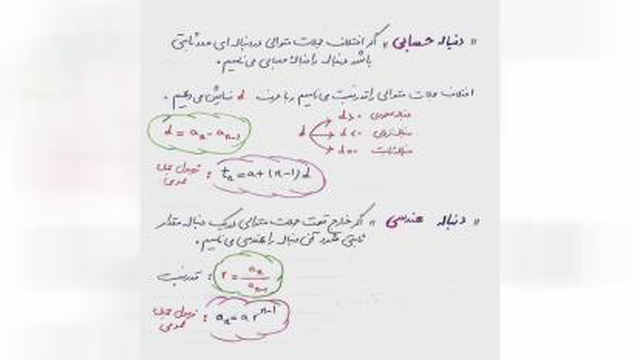 « دنباله حسابی » اگر اختلاف جملات متوالی در دنباله ای عدد ثابتی
باشد دنباله را دنباله حسابی می نامیم .
اختلاف جملات متوالی را قدرنسبت می نامیم و با حرف d نمایش می دهیم .
d = aₙ - aₙ₋₁
d
d > 0 دنباله صعودی
d < 0 دنباله نزولی
d = 0 دنباله ثابت
فرمول جمله عمومی : tₙ = a + (n-1) d
« دنباله هندسی » اگر خارج قسمت جملات متوالی در یک دنباله مقدار
ثابتی شد آن دنباله را هندسی می نامیم .
قدرنسبت : r = aₙ / aₙ₋₁
فرمول جمله عمومی : aₙ = a rⁿ⁻¹